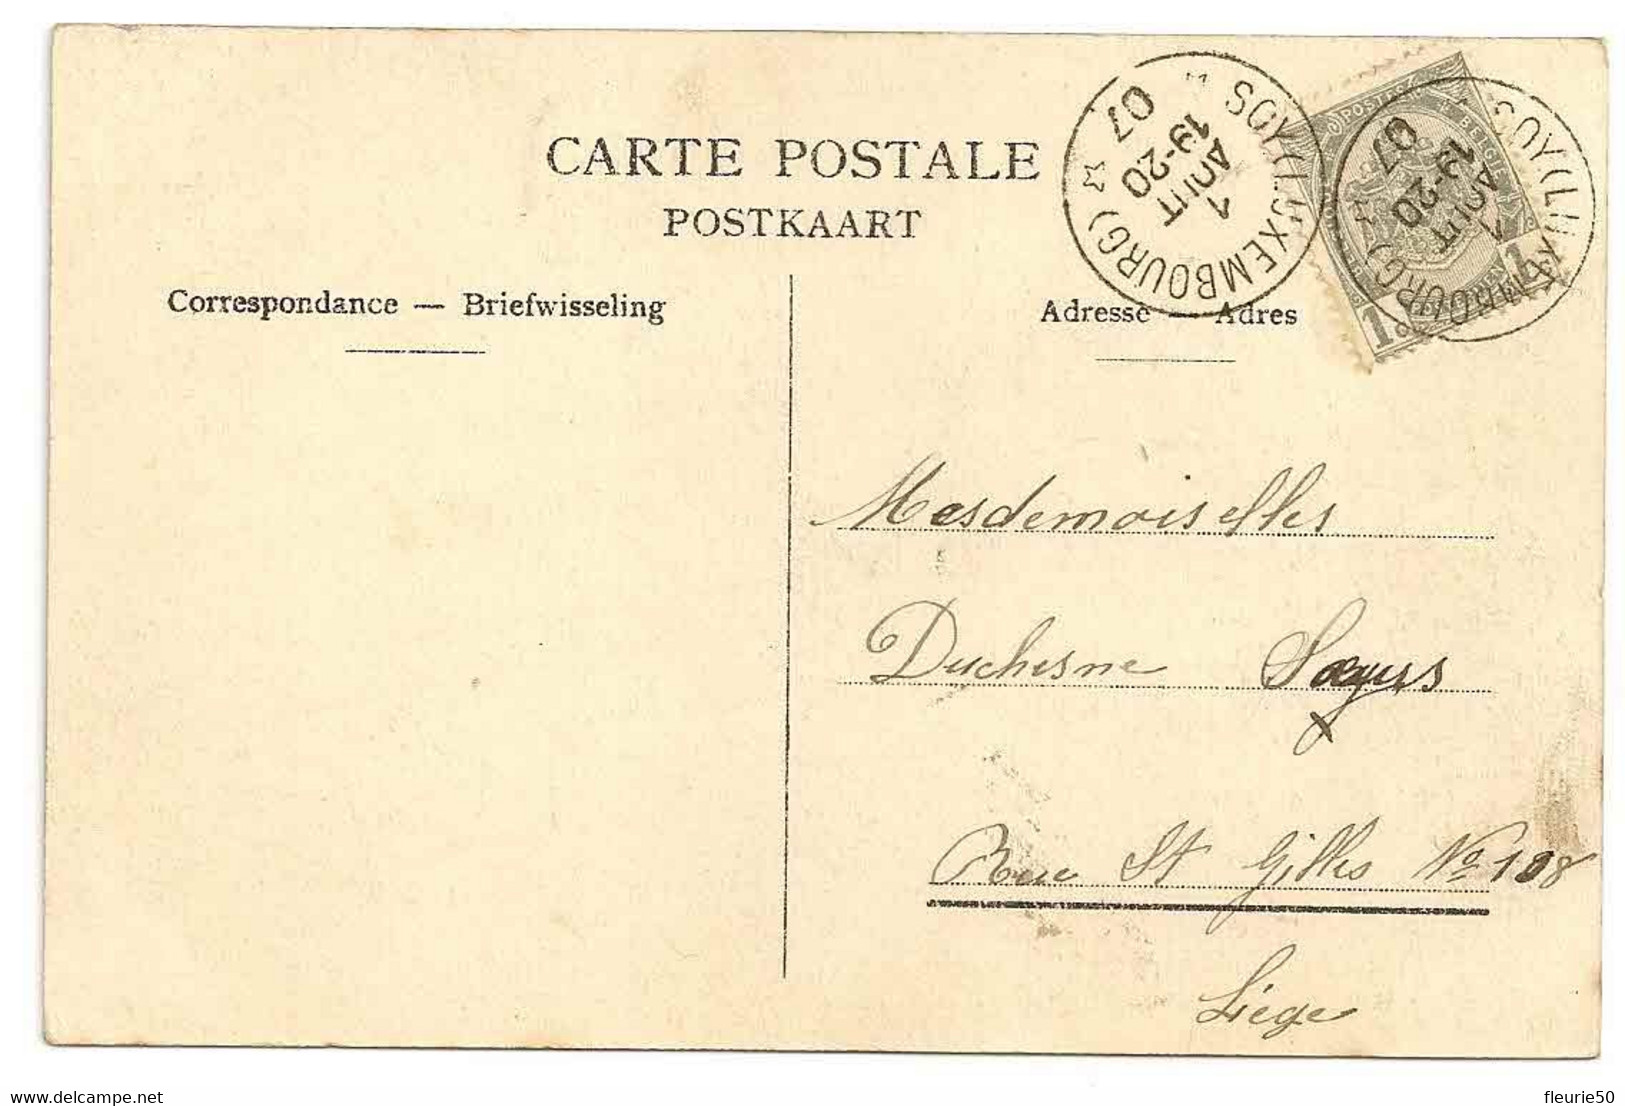 CARTE POSTALE
POSTKAART
Correspondance — Briefwisseling
Adresse — Adres
SOY (LUXEMBOURG)
1
AOUT
19-20
07
SOY (LUXEMBOURG)
1
AOUT
19-20
07
POSTES
BELGIQUE
1 1
Mesdemoiselles
Duchesne
Rue St Gilles No 108
Liége
www.delcampe.net
fleurie50